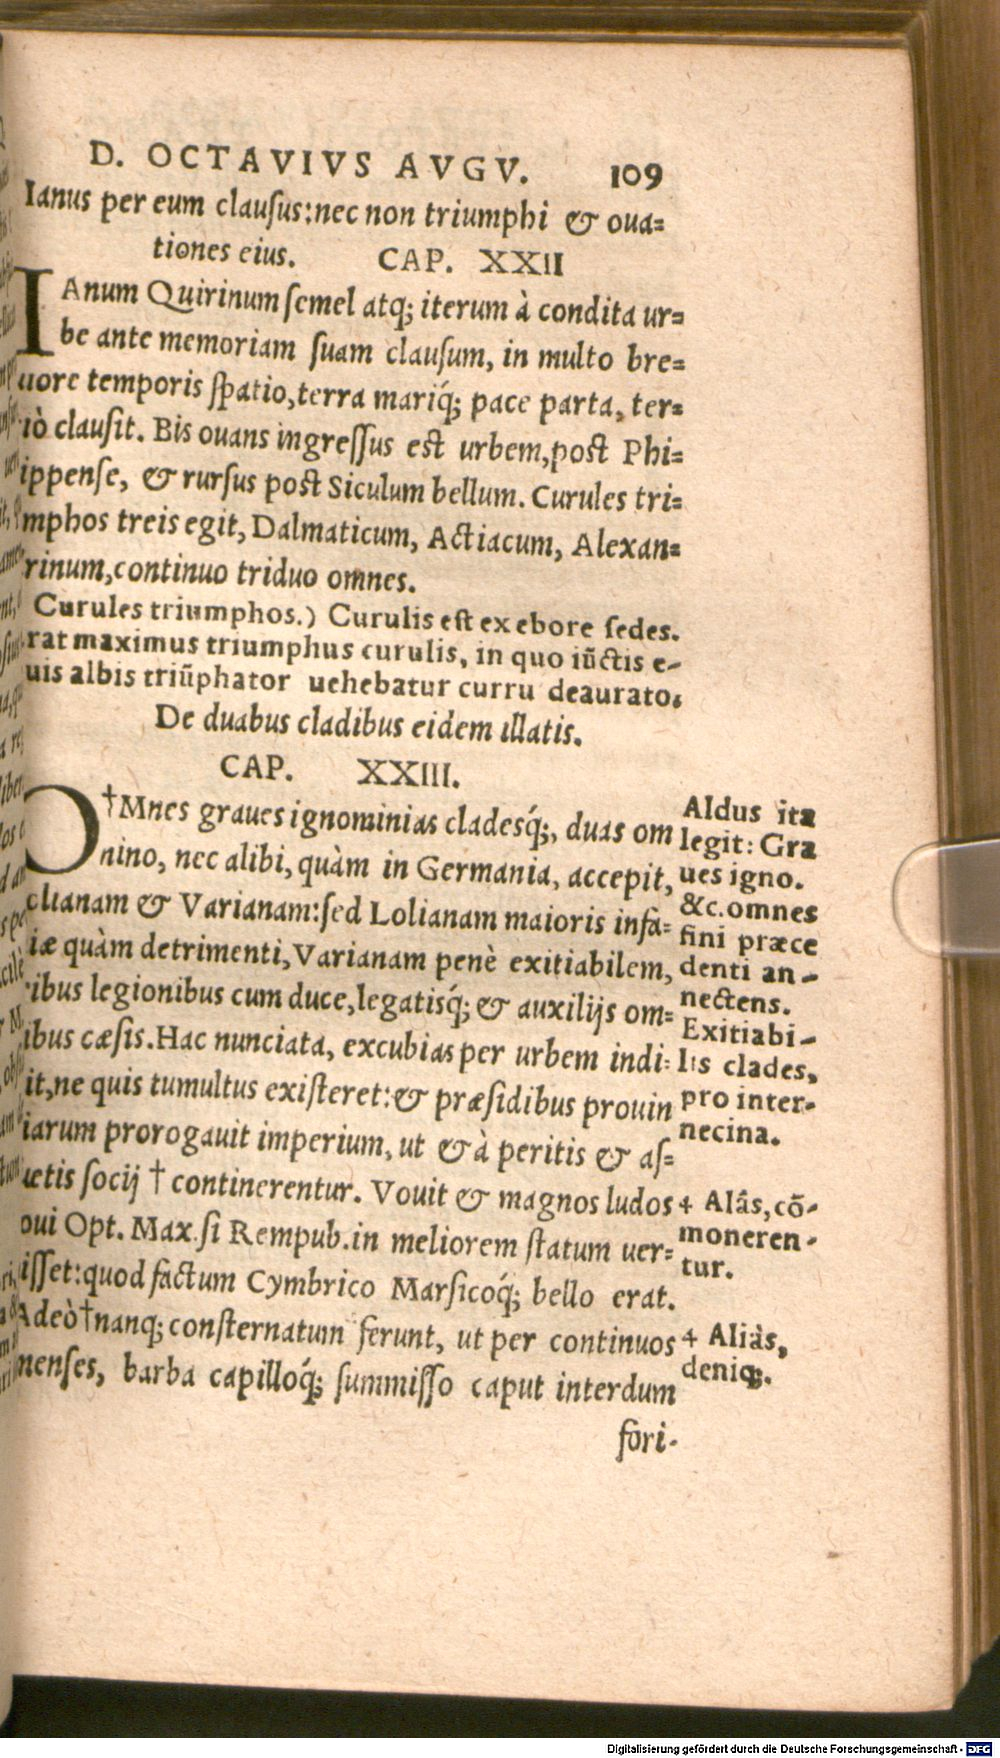 D. OCTAVIVS AVGV. 109
Ianus per eum clausus: nec non triumphi & oua=
tiones eius. CAP. XXII
IAnum Quirinum semel atq; iterum à condita ur=
be ante memoriam suam clausum, in multo bre=
uore temporis spatio, terra mariq́; pace parta, ter=
iò clausit. Bis ouans ingressus est urbem, post Phi=
ippense, & rursus post Siculum bellum. Curules tri=
mphos treis egit, Dalmaticum, Actiacum, Alexan=
rinum, continuo triduo omnes.
Curules triumphos.) Curulis est ex ebore sedes.
rat maximus triumphus curulis, in quo iũctis e-
uis albis triũphator uehebatur curru deaurato.
De duabus cladibus eidem illatis.
CAP. XXIII.
O†Mnes graues ignominias cladesq́;, duas om
nino, nec alibi, quàm in Germania, accepit,
clianam & Varianam: sed Lolianam maioris infa=
iæ quàm detrimenti, Varianam penè exitiabilem,
ribus legionibus cum duce, legatisq́; & auxilijs om=
ibus cæsis. Hac nunciata, excubias per urbem indi=
it, ne quis tumultus existeret: & præsidibus prouin
iarum prorogauit imperium, ut & à peritis & as=
uetis socij † continerentur. Vouit & magnos ludos
oui Opt. Max. si Rempub. in meliorem statum uer=
isset: quod factum Cymbrico Marsicoq́; bello erat.
Adeò † nanq; consternatum ferunt, ut per continuos
nenses, barba capilloq́; summisso caput interdum
fori-
Aldus ita
legit: Gra
ues igno.
&c. omnes
fini præce
denti an-
nectens.
Exitiabi-
lis clades,
pro inter-
necina.
+ Aliâs, cõ-
moneren-
tur.
+ Aliàs,
deniq;.
Digitalisierung gefördert durch die Deutsche Forschungsgemeinschaft - DFG